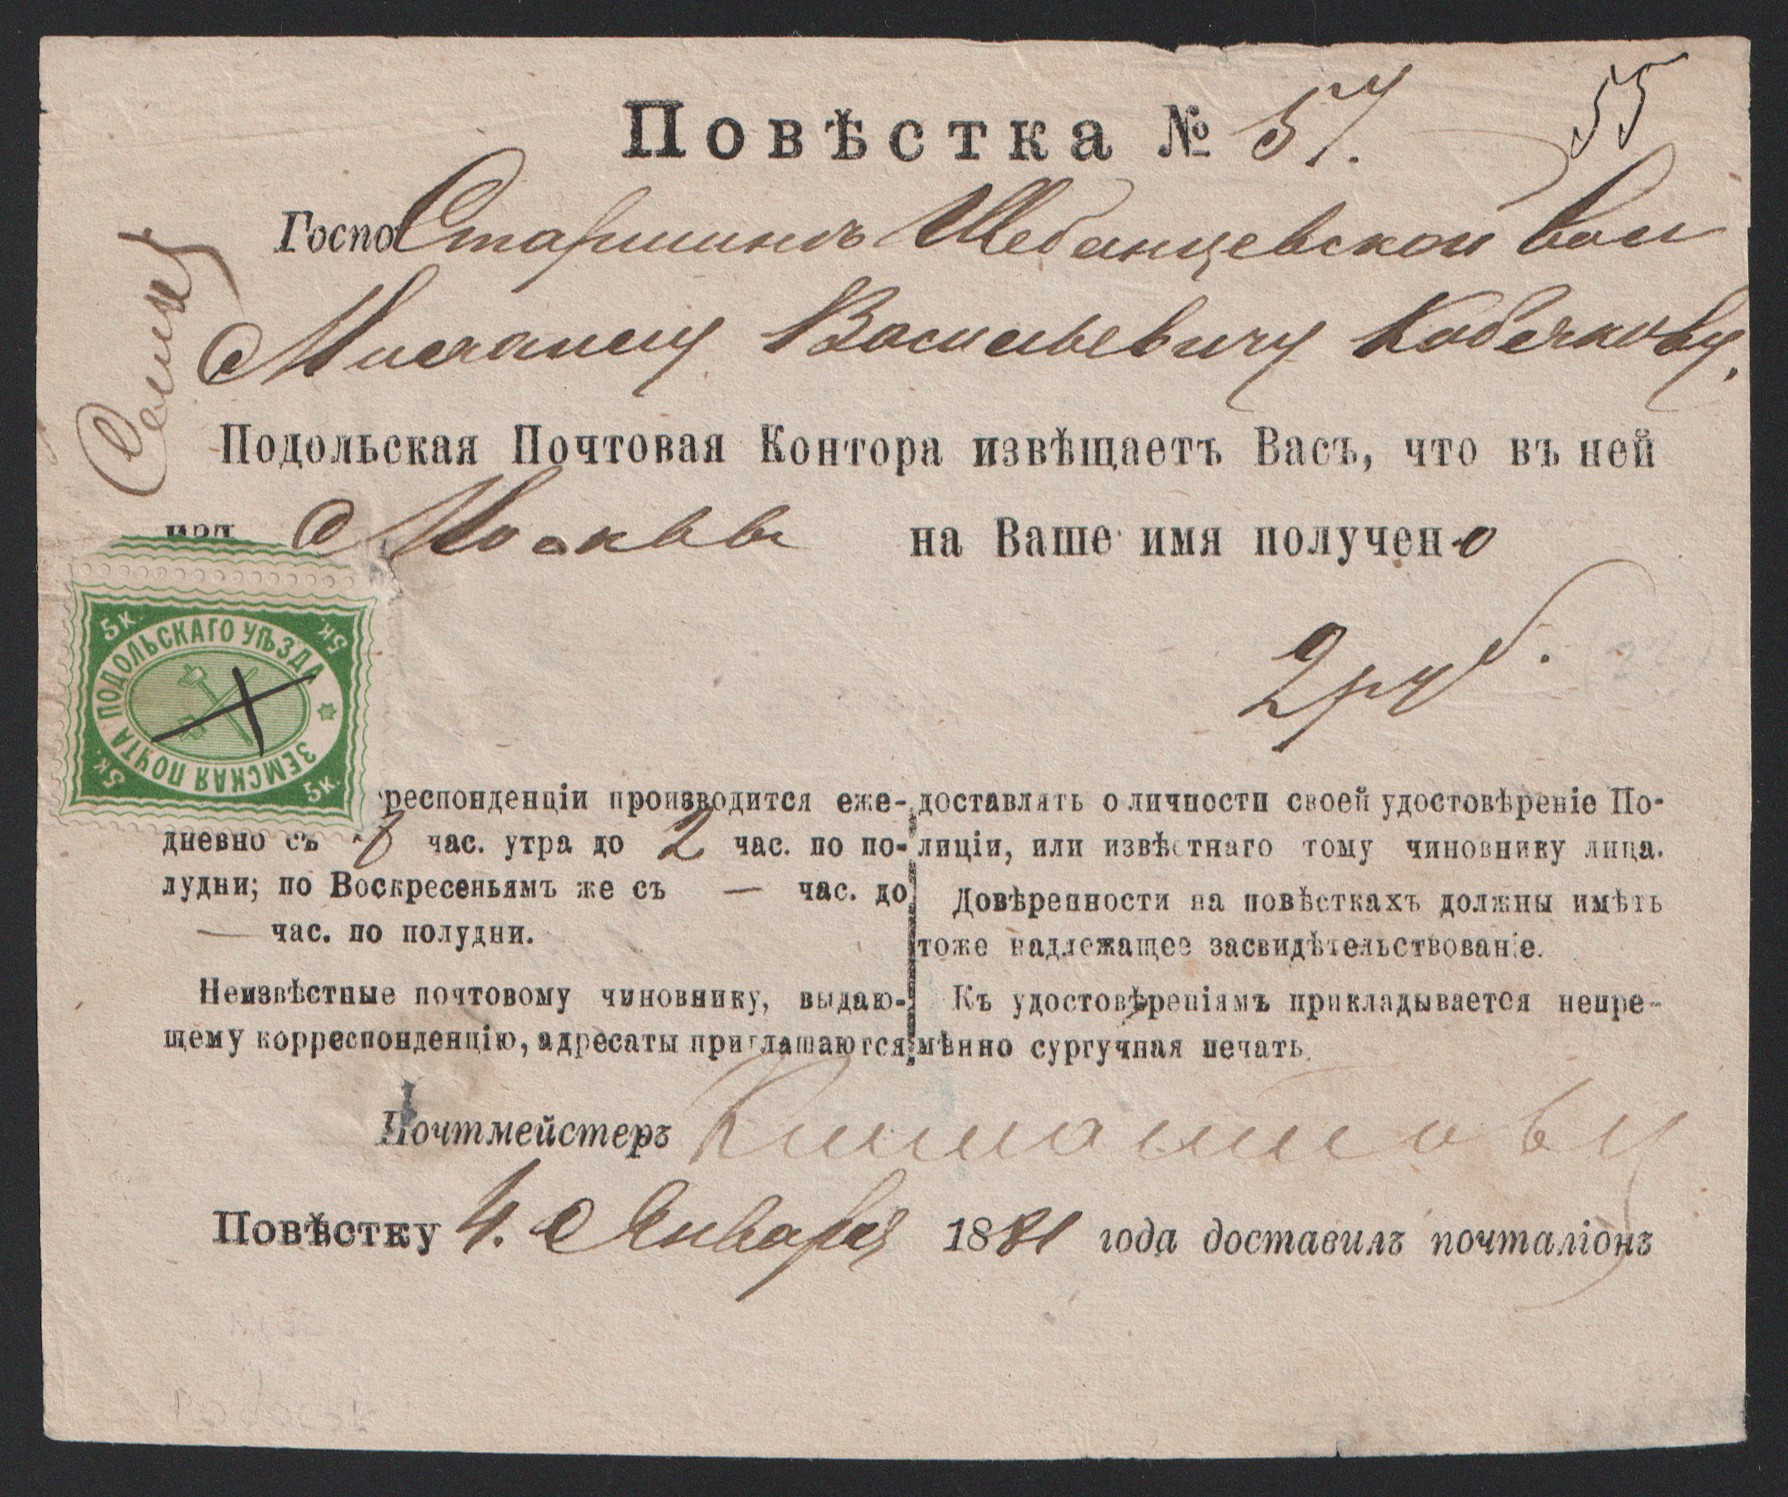 Повѣстка № 57.
55
Госпо Старшинѣ Шебанцевской вол
Михаилу Васильевичу
Подольская Почтовая Контора извѣщаетъ Васъ, что въ ней
изъ Москвы на Ваше имя получено
2 руб.
5 к. 5 к.
ЗЕМСКАЯ ПОЧТА ПОДОЛЬСКАГО УѢЗДА
5 к. 5 к.
респонденціи производится еже-
дневно съ 8 час. утра до 2 час. по по-
лудни; по Воскресеньямъ же съ — час. до
— час. по полудни.
Неизвѣстные почтовому чиновнику, выдаю-
щему корреспонденцію, адресаты приглашаются
доставлять о личности своей удостовѣреніе По-
лиціи, или извѣстнаго тому чиновнику лица.
Довѣренности на повѣсткахъ должны имѣть
тоже надлежащее засвидѣтельствованіе.
Къ удостовѣреніямъ прикладывается непре-
мѣнно сургучная печать.
Почтмейстеръ
Повѣстку 4. Января 1881 года доставилъ почталіонъ